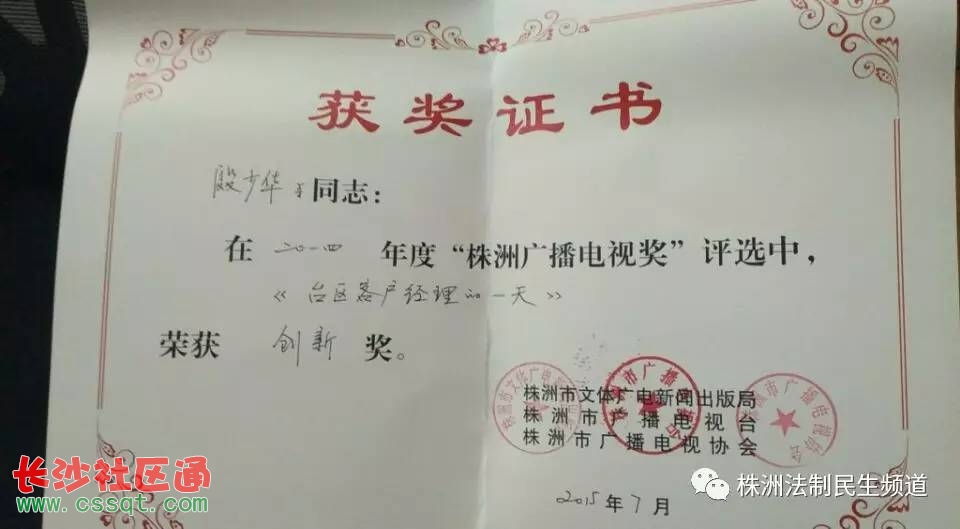 获奖证书
殷少华 等同志：
在 二〇一四 年度“株洲广播电视奖”评选中，
《台区客户经理的一天》
荣获 创新 奖。
株洲市文体广电新闻出版局
株洲市广播电视台
株洲市广播电视协会
2015年7月
株洲法制民生频道
长沙社区通
www.cssqt.com